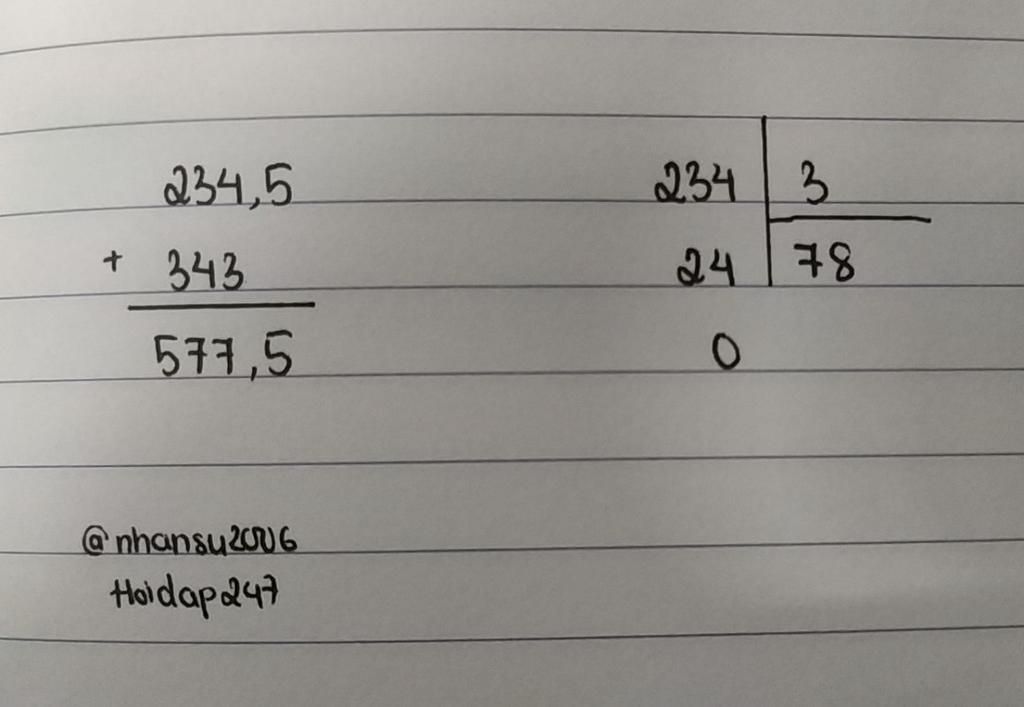 234,5
+ 343
577,5
234 3
24 78
0
@nhansu2006
Hoidap247